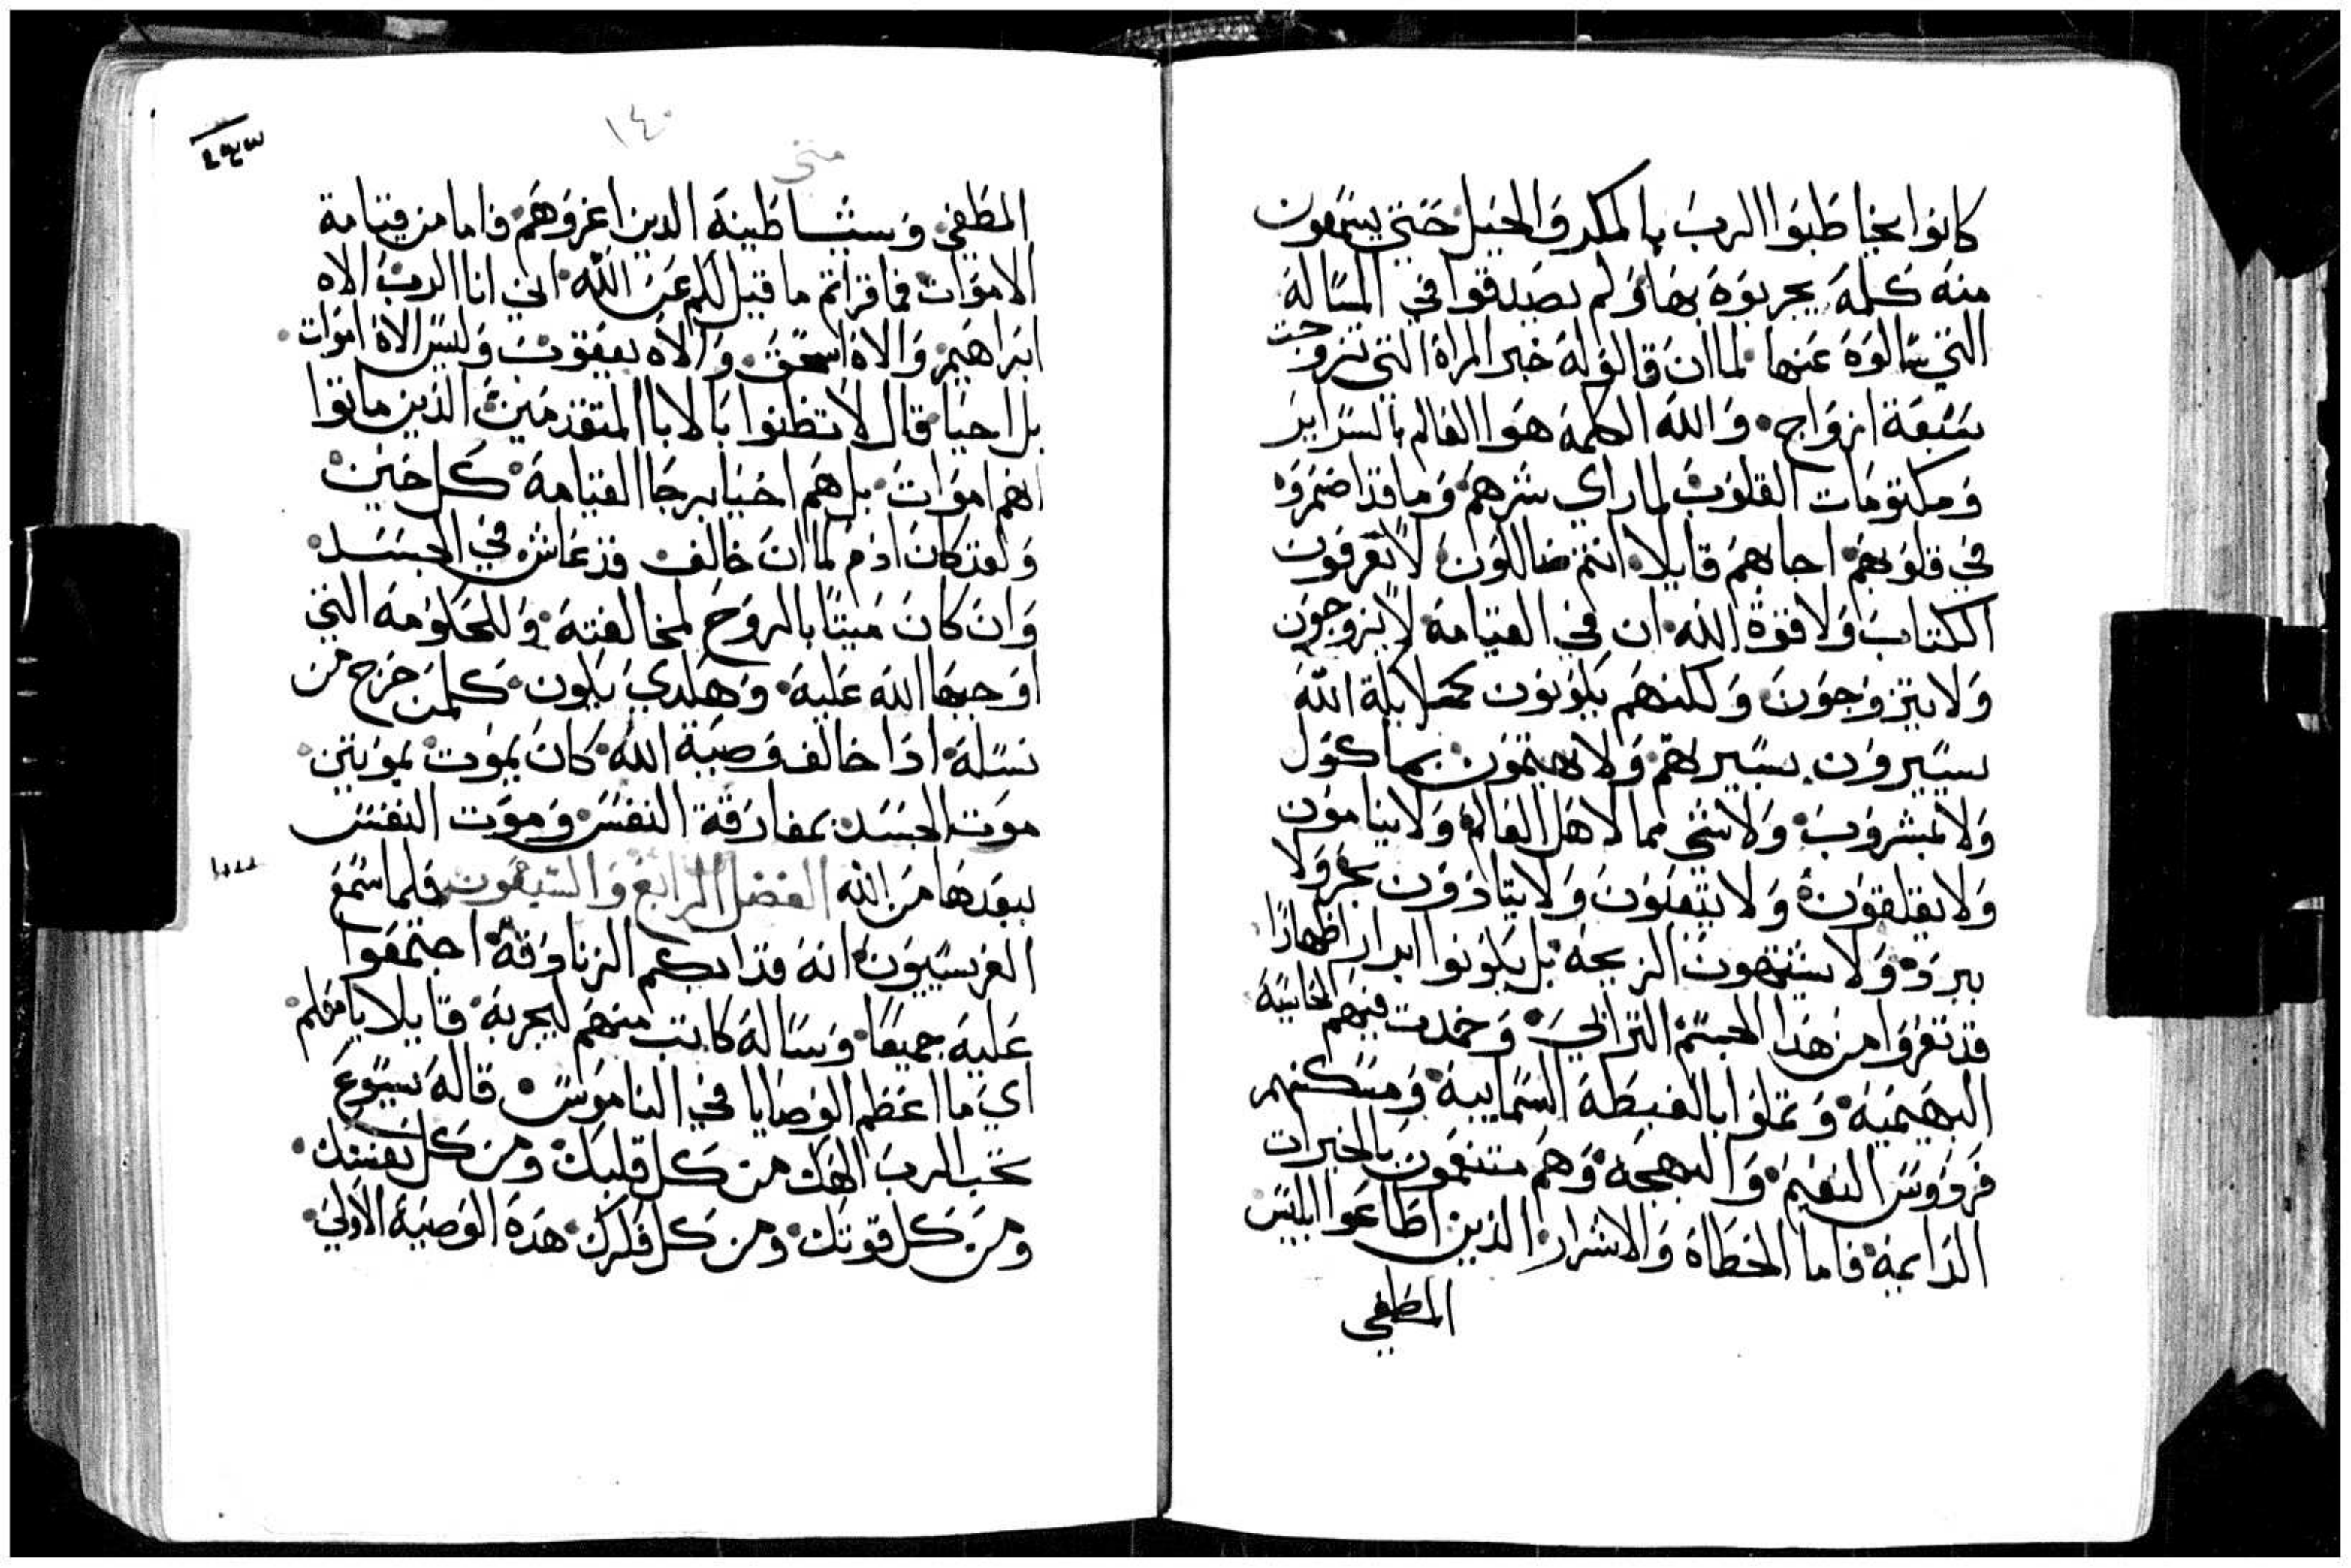 كانوا يخاطبوا الرب بالمكر والحيل حتي يسمعون
منه كلمة يجربوه بها ولم يصدقوا في المسالة
التي سالوه عنها لما ان قالوا له خبر المراة التي تزوجت
سبعة ازواج والله الكلمة هوا العالم بالسراير
ومكتومات القلوب لما راي شرهم وما قد اضمروه
في قلوبهم اجابهم قايلا انتم ضالون لا تعرفون
الكتاب ولا قوة الله ان في القيامة لا يزوجون
ولا يتزوجون ولكنهم يكونون كملايكة الله
يسيرون بسيرتهم ولا يهتمون بماكول
ولا بمشروب ولا شي مما لاهل العالم ولا يناموان
ولا يقلقون ولا يتعبون ولا يتادون بحر ولا
ببرد ولا يشتهون الزيجة بل يكونوا ابرار اطهارا
قد تعروا من هذا الجسم الترابي وخمدت فيهم الحاسية
البهيمية وتملوا بالغبطة السمايية ومسكنهم
فردوس النعيم والبهجة وهم متنعمون بالخيرات
الدايمة فاما الخطاة والاشرار الذين اطاعوا ابليس
المطغي
١٤٠
متي
المطغي وشياطينه الدين اغروهم فاما من قيامة
الاموات فما قراتم ما قيل لكم عن الله اني انا الرب الاه
ابراهيم والاه اسحق والاه يعقوب وليس الاه اموات
بل احيا قال لا تظنوا بالابا المتقدمين الذين ماتوا
انهم اموات بل هم احيا برجا القيامة كل حين
ولقد كان ادم لما ان خالف قد عاش في الجسد
وان كان ميتا بالروح لمخالفته وللحكومة التي
اوجبها الله عليه وهكدي يكون كلمن خرج من
نسله ادا خالف وصية الله كان يموت بموتتين
موت الجسد بمفارقة النفس وموت النفس
ببعدها من الله الفصل الرابع والسبعون فلما سمع
الفريسيون انه قد ابكم الزنادقة اجتمعوا
عليه جميعا وساله كاتب منهم ليجربه قايلا يا معلم
اي ما اعظم الوصايا في الناموس قال له يسوع
تحب الرب الهك من كل قلبك ومن كل نفسك
ومن كل قوتك ومن كل فكرك هذه الوصية الاولي